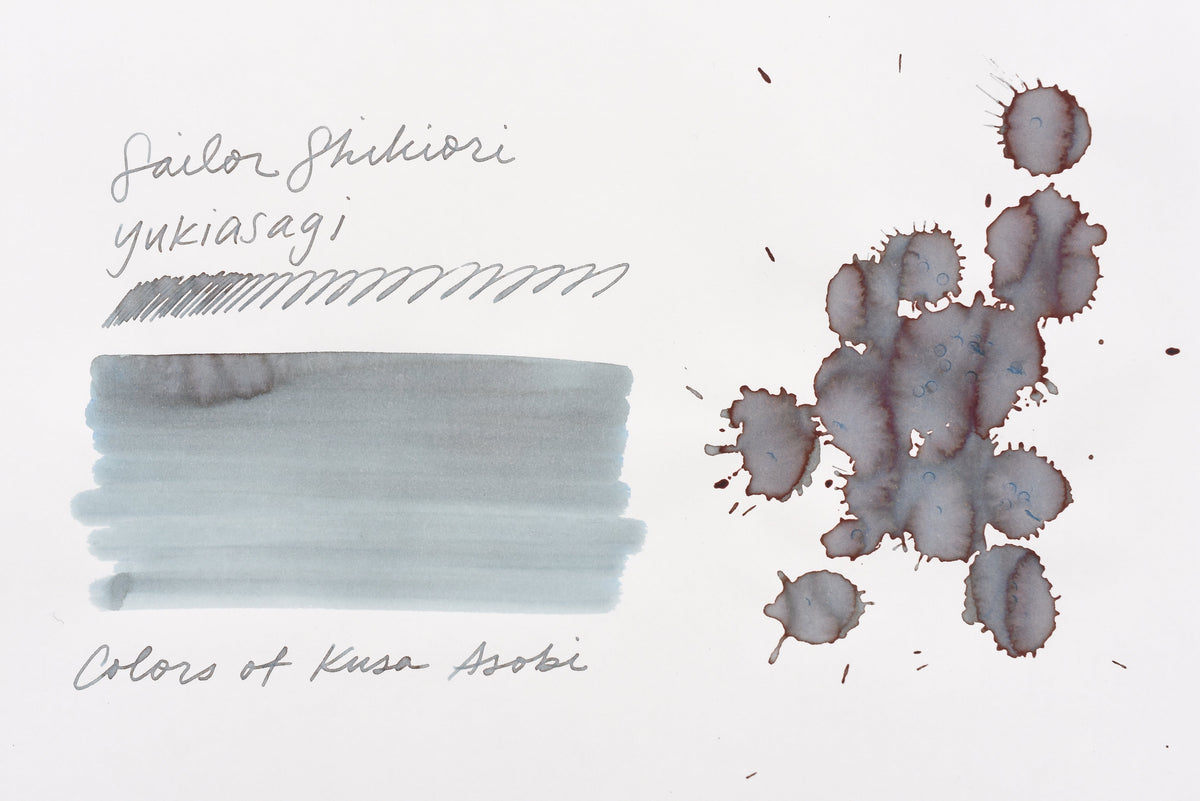 Sailor Shikiori
yukiasagi
Colors of Kusa Asobi